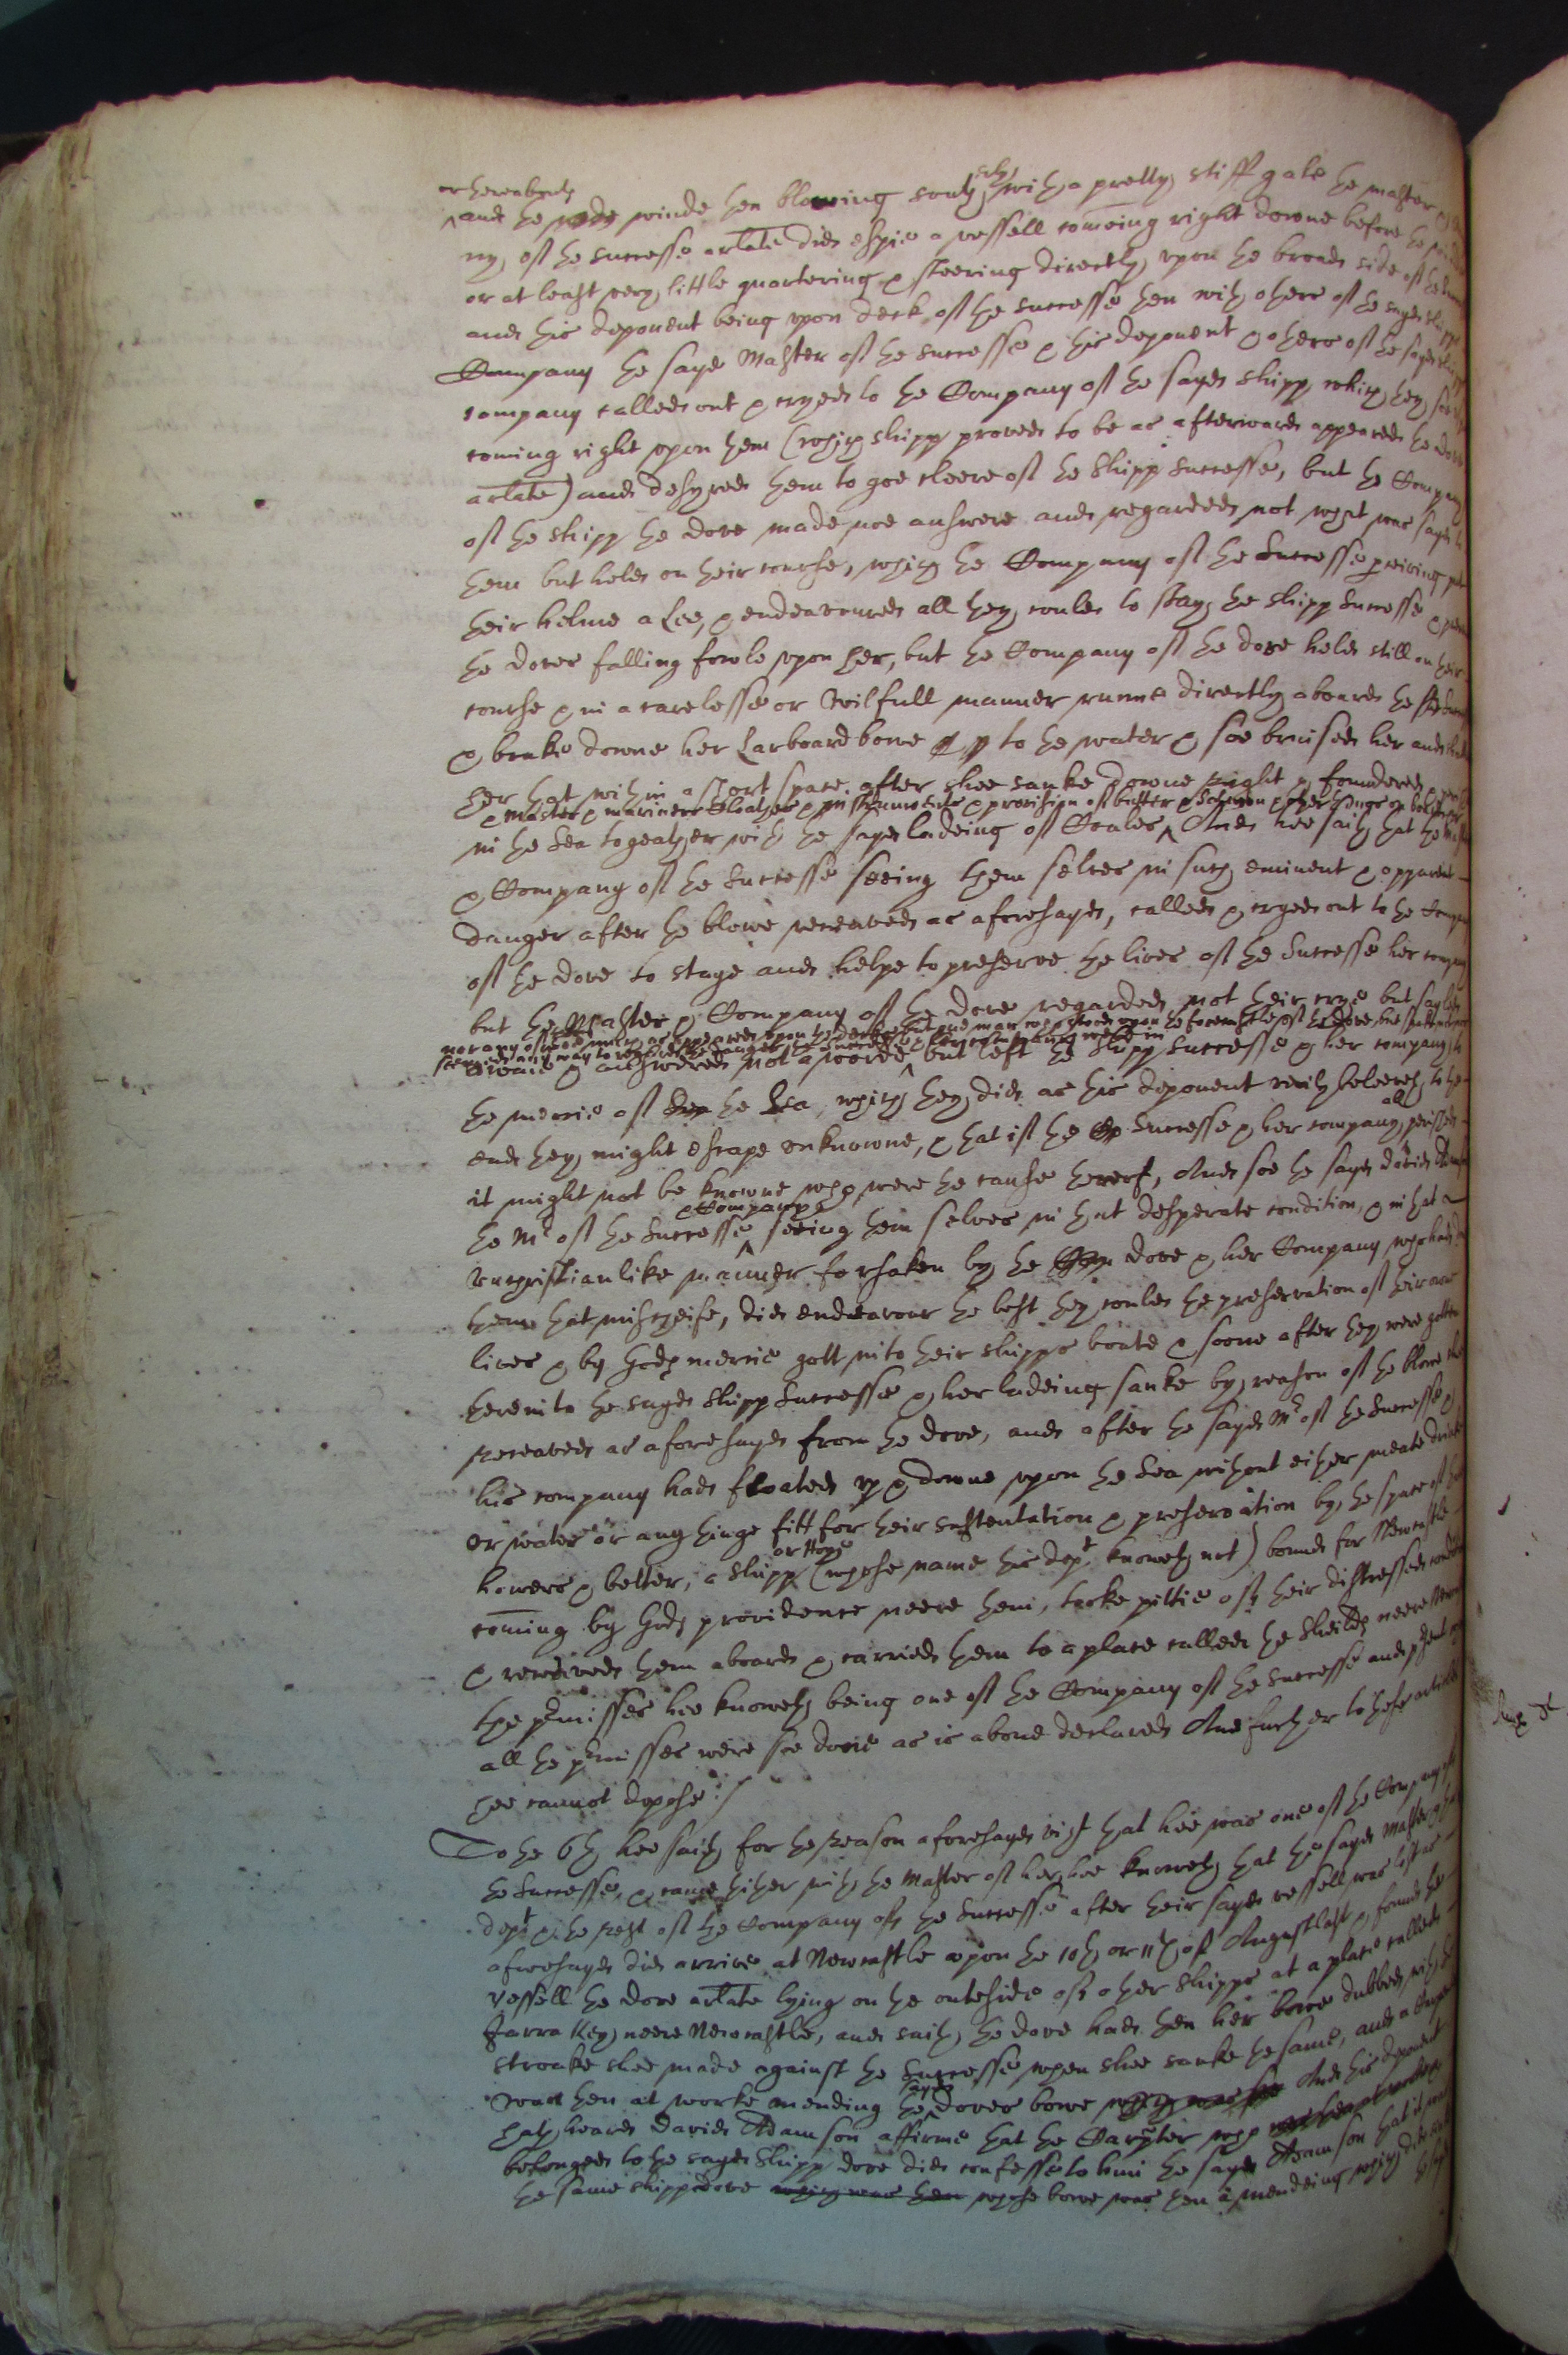 or hereabouts
and the winde then blowing south with a pretty stiff gale the master
ny, of the successe arlate did espie a vessell comeing right downe before the
or at least very little quartering & steering directly vpon the broad side of the
and this deponent being vpon deck of the successe then with others of the sayd shipps
Company the sayd Master of the successe & this deponent & others of the sayd
company called out & cryed to the Company of the sayd shipp which they
coming right vpon them (which shipp proved to be as afterwards appeared the dove
arlate) and desyred them to goe cleere of the shipp Successe, but the Company
of the shipp the dove made noe answere and regarded not what was sayd to
them but held on their course, which the Company of the Successe perceiving put
their helme a Lee, & endeavoured all they could to stay the shipp Successe &
the doves falling fowle vpon her, but the Company of the dove held still on their
course & in a carelesse or wilfull manner runne directly aboard the
& brake downe her Larboard bowe to the water & soe bruised her and
her that within a short space after shee sanke downe right & foundered
& master & mariners cloathes & instruments & provision of butter &
in the Sea togeather with the sayd ladeing of Coales And hee saith that the
& Company of the Successe seeing them selves in such eminent & apparent
danger after the blowe receaved as aforesayd, called & cryed out to the
of the dove to staye and helpe to preserve the lives of the Successe her company
but the Master & Company of the dove regarded not their crye but sayled
nor any of soe much as appeared vpon the decke but one man who stood vpon the forecastle of the dove, but
away & answered not a worde but left the shipp successe & her company to
the mercie of the Sea, which they did as this deponent verily beleeveth to the
all
end they might escape vnknowne, & that if the Successe & her company perished
it might not be knowne who were the cause thereof, And soe he sayd david
& Company
the Mr of the Successe seeing them selves in that desperate condition, & in that
vnchristianlike manner forsaken by the dove & her Company who had
them that mischeife, did endeavour the best they could the preservation of their owne
lives & by gods mercie gott into their shipps boate & soone after they were gotten
thereinto the sayd shipp Successe & her ladeing sanke by reason of the blowe
receaved as aforesayd from the dove, and after the sayd Mr of the Successe &
his company had floated vp & downe vpon the Sea without either meate drinke
or water or any thinge fitt for their sustentation & preservation by the space of
or Hoye
howers & better, a shipp (whose name this dept knoweth not) bound for Newcastle
coming by gods providence neere them, tooke pittie of their distressed
& receaved them aboard & carried them to a place called the Sheilds neere
the premisses hee knoweth being one of the Company of the Successe and
all the premisses were soe done as is above declared And further to these
hee cannot depose:/
To the 6th hee saith for the reason aforesayd vizt that hee was one of the Company of
the Successe, & came thither with the master of her hee knoweth that the sayd Master
dept & the rest of the Company of the Successe after their sayd vessell was lost as
aforesayd did arrive at Newcastle vpon the 10th or 11th of August last & found the
vessell the dove arlate lying on the outeside of other shipps at a place called
Jarra Key neere Newcastle, and saith the dove had then her bowe dubbed with
stroake shee made against the Successe when shee sanke the same, and a
sayd
was then at worke mending the doves bowe And this deponent
hath heard david Adamson affirme that the Carpter who
belonged to the sayd shipp dove did confesse to him the sayd Adamson that it was
the same shipp dove whose bowe was then a mendeing which did